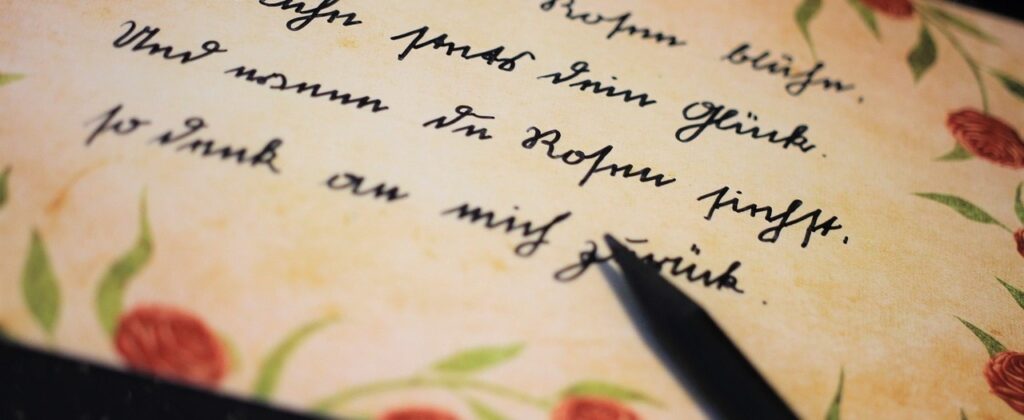 Rosen blühn,
stets dein Glück.
Und wenn du Rosen siehst,
so denk an mich zurück.